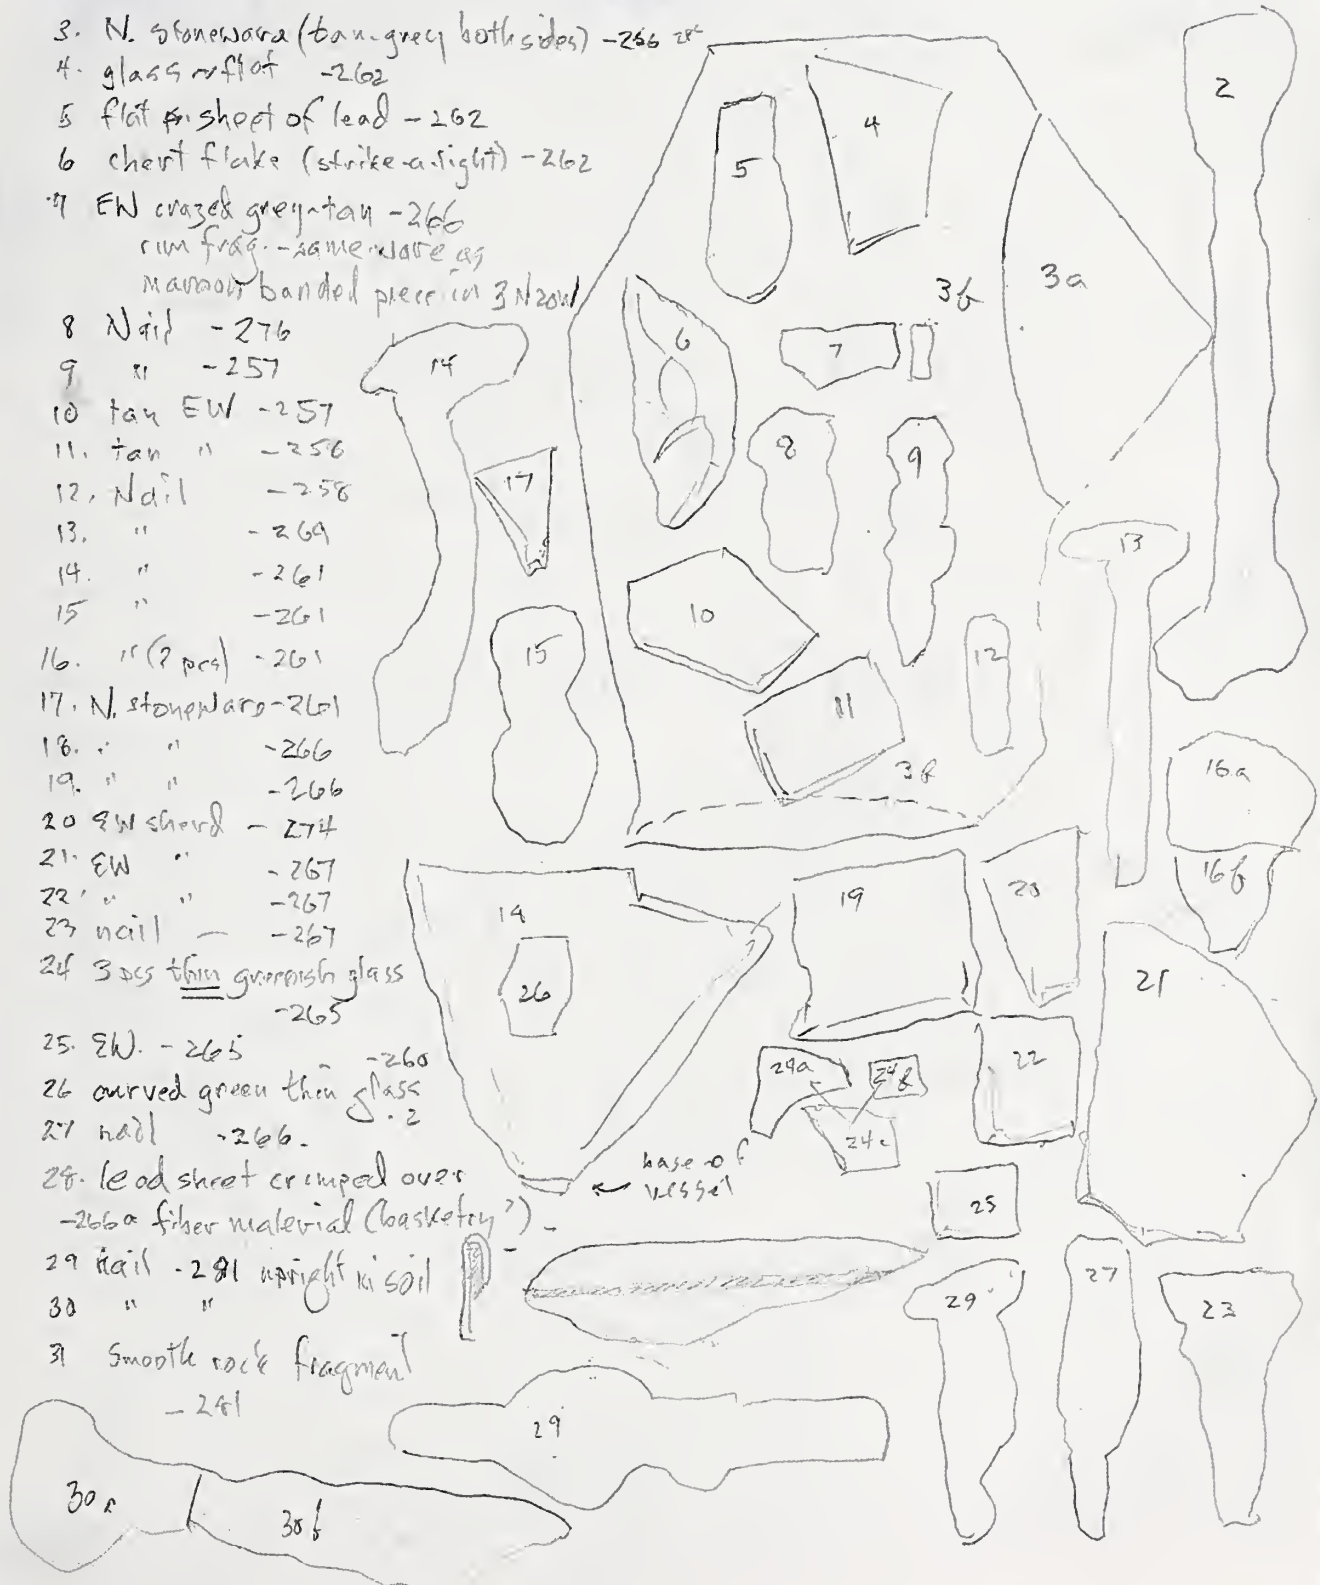 3. N. stoneware (tan-grey both sides) -256
4. glass flat -262
5 flat sheet of lead - 262
6 chert flake (strike-a-light) -262
7 EW crazed grey-tan -266
rim frag. - same ware as
maroon banded piece in 3N20W
8 Nail -276
9 " -257
10 tan EW -257
11. tan " -256
12. Nail -258
13. " -269
14. " -261
15 " -261
16. " (2 pcs) -261
17. N. stoneware -261
18. " " -266
19. " " -266
20 EW sherd - 274
21. EW " -267
22 " " -267
23 nail — -267
24 3 pcs thin greenish glass
-265
25. EW. - 265
-260
26 curved green thin glass
27 nail -266.
28. lead sheet crimped over
-266 a fiber material (basketry?) -
29 nail -281 upright in soil
30 " "
31 Smooth rock fragment
- 281
2
4
5
3a
3b
6
7
14
8
9
17
13
10
15
12
11
3b
16a
16b
19
20
26
21
22
24a
24b
24c
base of
vessel
25
29
27
23
29
30a
30b